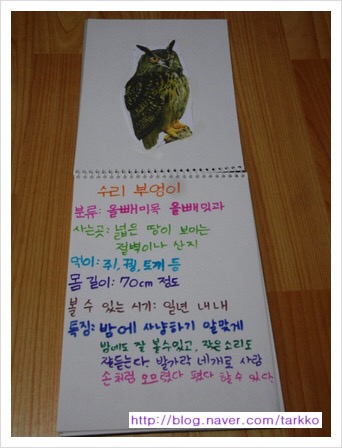 수리 부엉이
분류: 올빼미목 올빼밋과
사는곳: 넓은 땅이 보이는
절벽이나 산지
먹이: 쥐, 꿩, 토끼 등
몸 길이: 70cm 정도
볼 수 있는 시기: 일년 내내
특징: 밤에 사냥하기 알맞게
밤에도 잘 볼수있고, 작은소리도
잘듣는다. 발가락 네개로 사람
손처럼 오므렸다 폈다 할수 있다.
http://blog.naver.com/tarkko